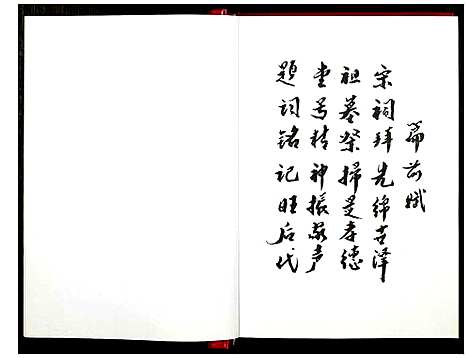 篇前赋
宗祠拜先綿吉泽
祖墓祭掃是孝德
堂号精神振家声
题词铭记旺后代